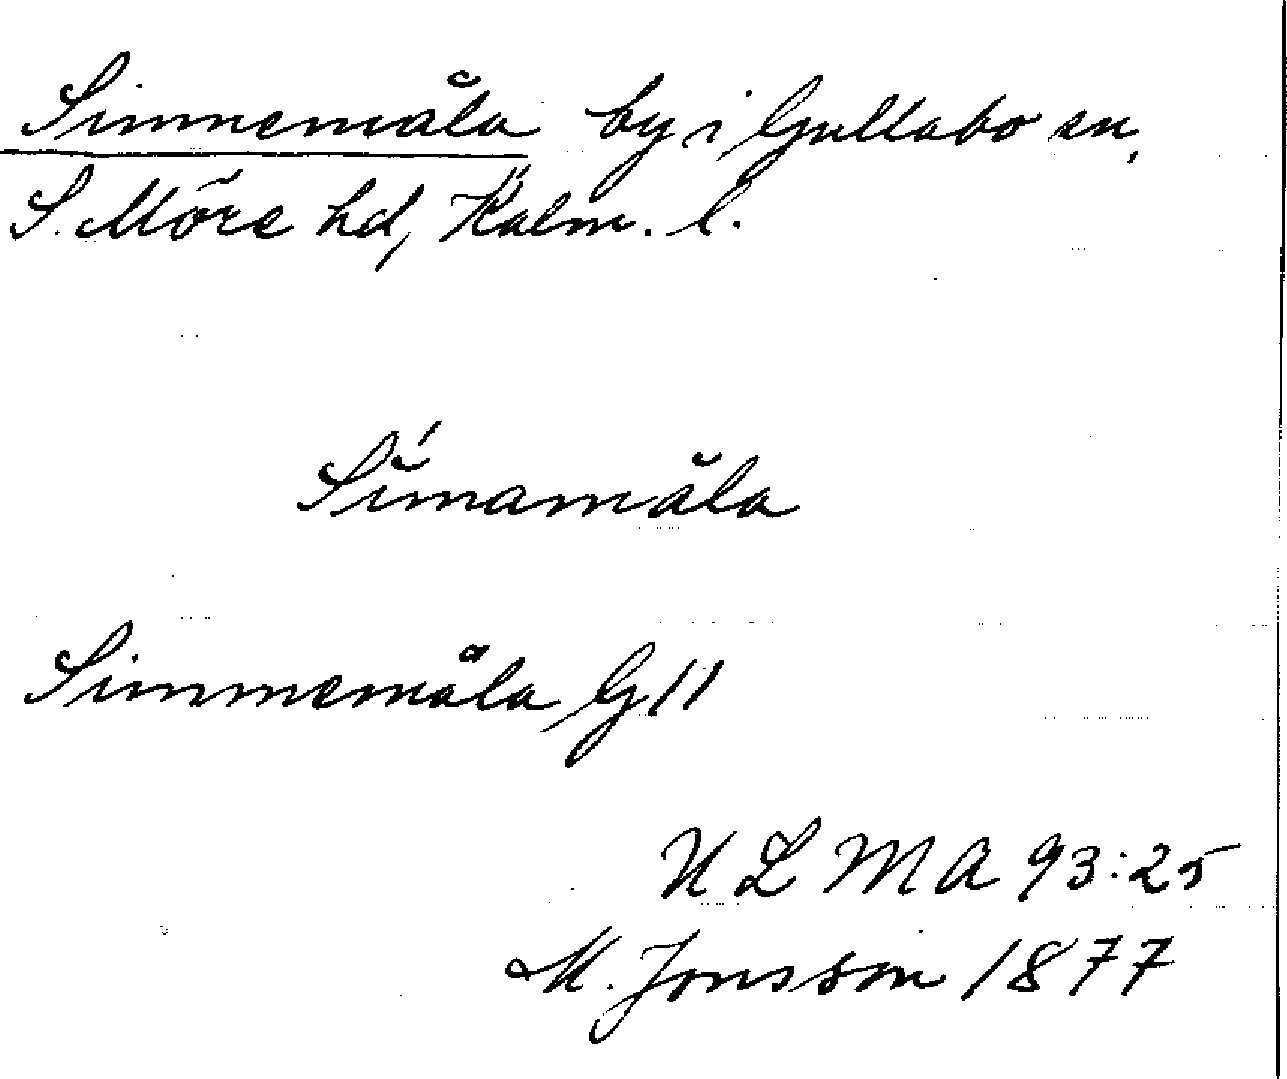 Simnemåla by i Gullabo sn,
S. Möre hd, Kalm. l.
Símamåla
Simmemåla G 11
ULMA 93:25
M. Jonsson 1877